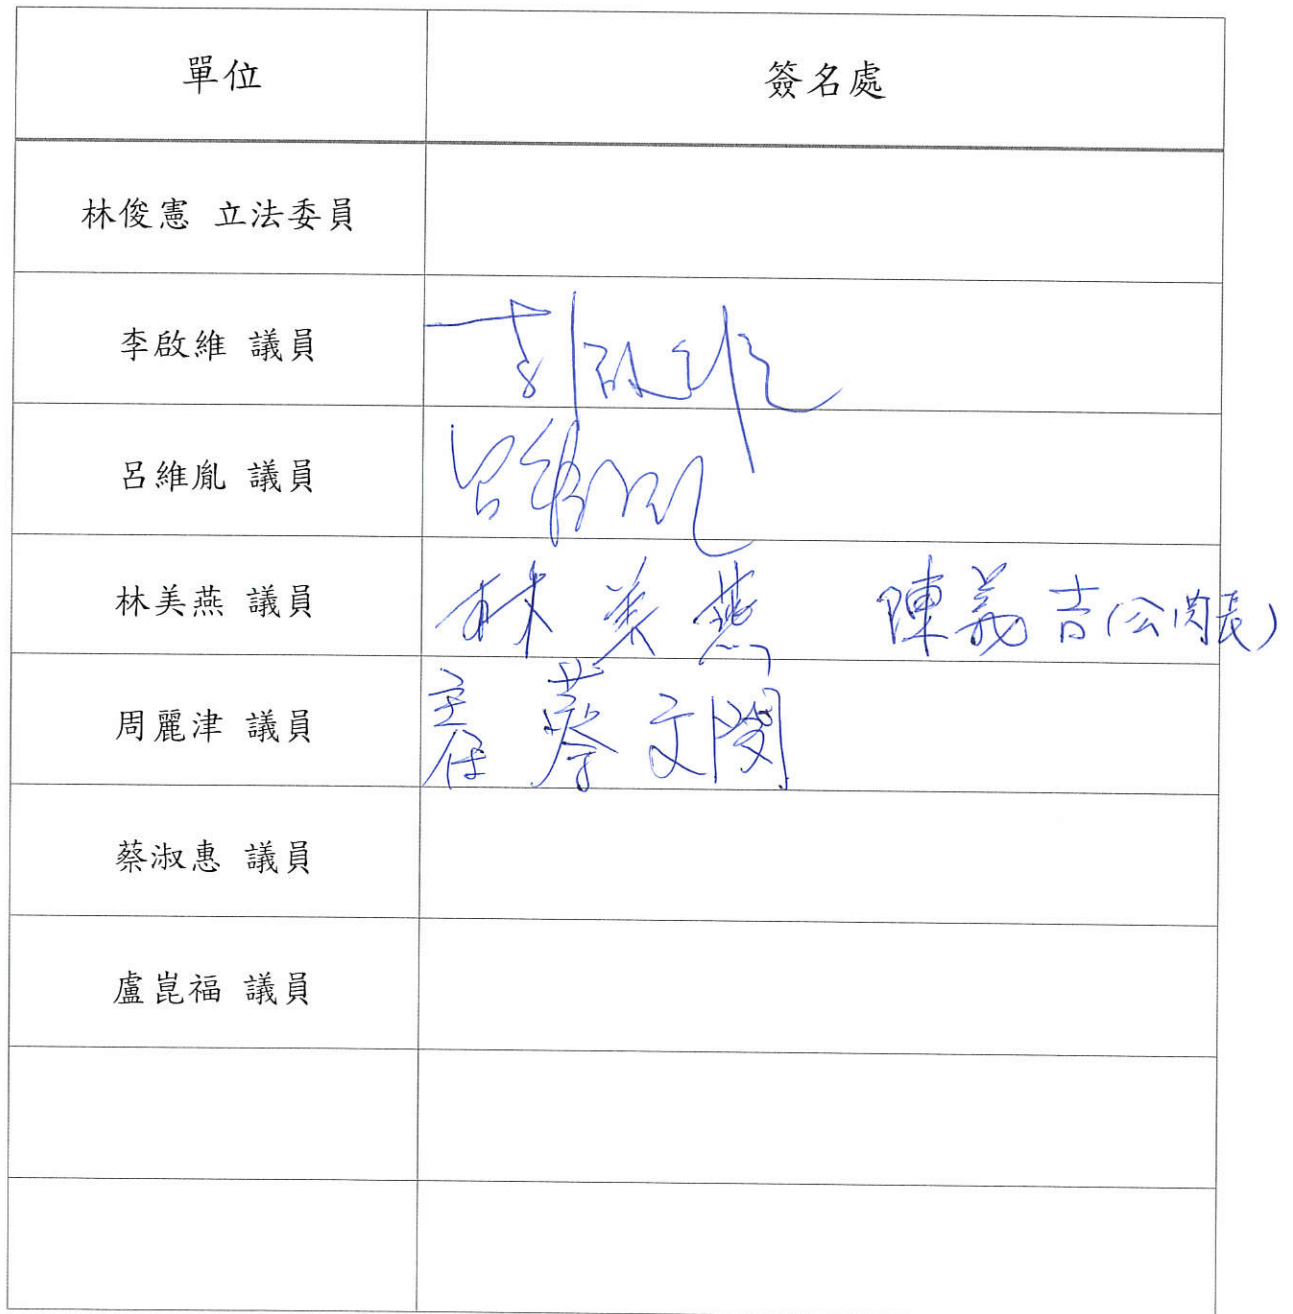 單位 簽名處
林俊憲 立法委員
李啟維 議員 李啟維
呂維胤 議員 呂維胤
林美燕 議員 林美燕 陳義吉(公關長)
周麗津 議員 主任 蔡文閔
蔡淑惠 議員
盧崑福 議員